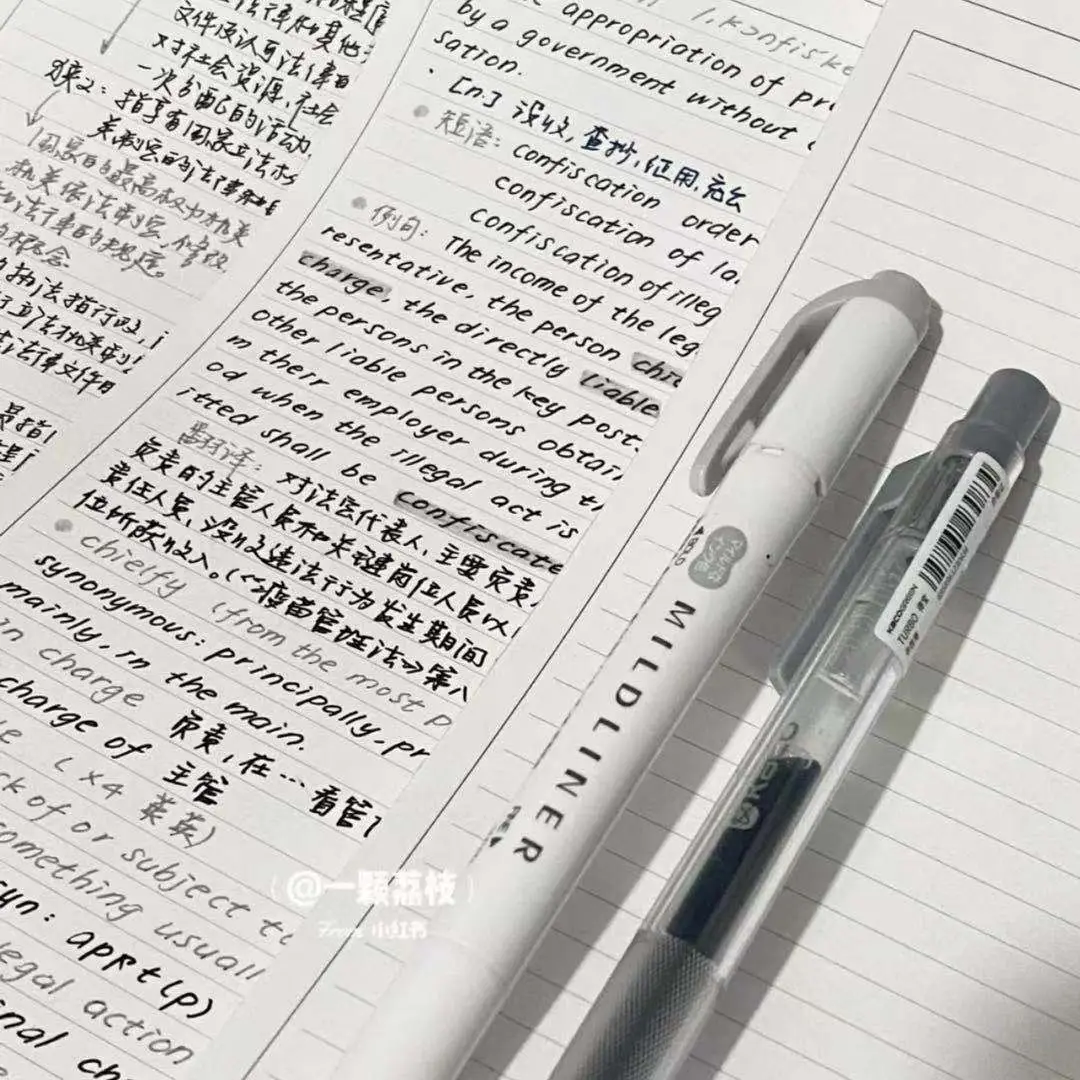 文件及认可法律的
对社会资源、社会
一次分配的活动
狭义：指享有国家立法机
关制定的法律
国家的最高权力机关
机关依法制定、修改
概念
执法指行
立法机关制
法律文件
是指
appropriation of pr
by a government without
sation.
· [n.] 没收，查抄，征用，充公
短语：confiscation order
confiscation of la
confiscation of illeg
例句：The income of the leg
resentative, the person chie
charge, the directly liable
the persons in the key post
other liable persons obtai
m their employer during th
od when the illegal act is
itted shall be confiscate
对法定代表人，主要负责
负责的主管人员和关键岗位人员以
责任人员，没收违法行为发生期间
位所获收入。(《疫苗管理法》第八
chielfy (from the most p
synonymous: principally, pr
mainly, in the main.
in charge 负责，在…看管下
charge of 主管
(x4 英英)
ck of or subject to
something usuall
syn: appt(p)
legal action
inal cha
BOLD
MILDLINER
FINE
KACOGREEN
TURBIO
@一颗荔枝
From 小红书